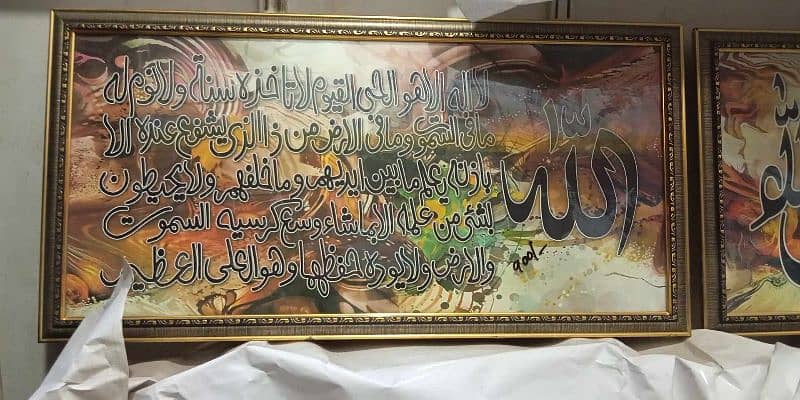 الله
لا اله الا هو الحي القيوم لا تاخذه سنة ولا نوم له
ما في السموت وما في الارض من ذا الذي يشفع عنده الا
باذنه يعلم ما بين ايديهم وما خلفهم ولا يحيطون
بشئ من علمه الا بما شاء وسع كرسيه السموت
والارض ولا يوده حفظهما وهو العلي العظيم
900/-